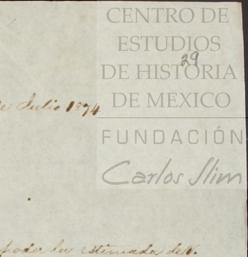 CENTRO DE
ESTUDIOS
29
DE HISTORIA
DE MEXICO
de Julio 1874
FUNDACIÓN
Carlos Slim
poder la estimada de V.